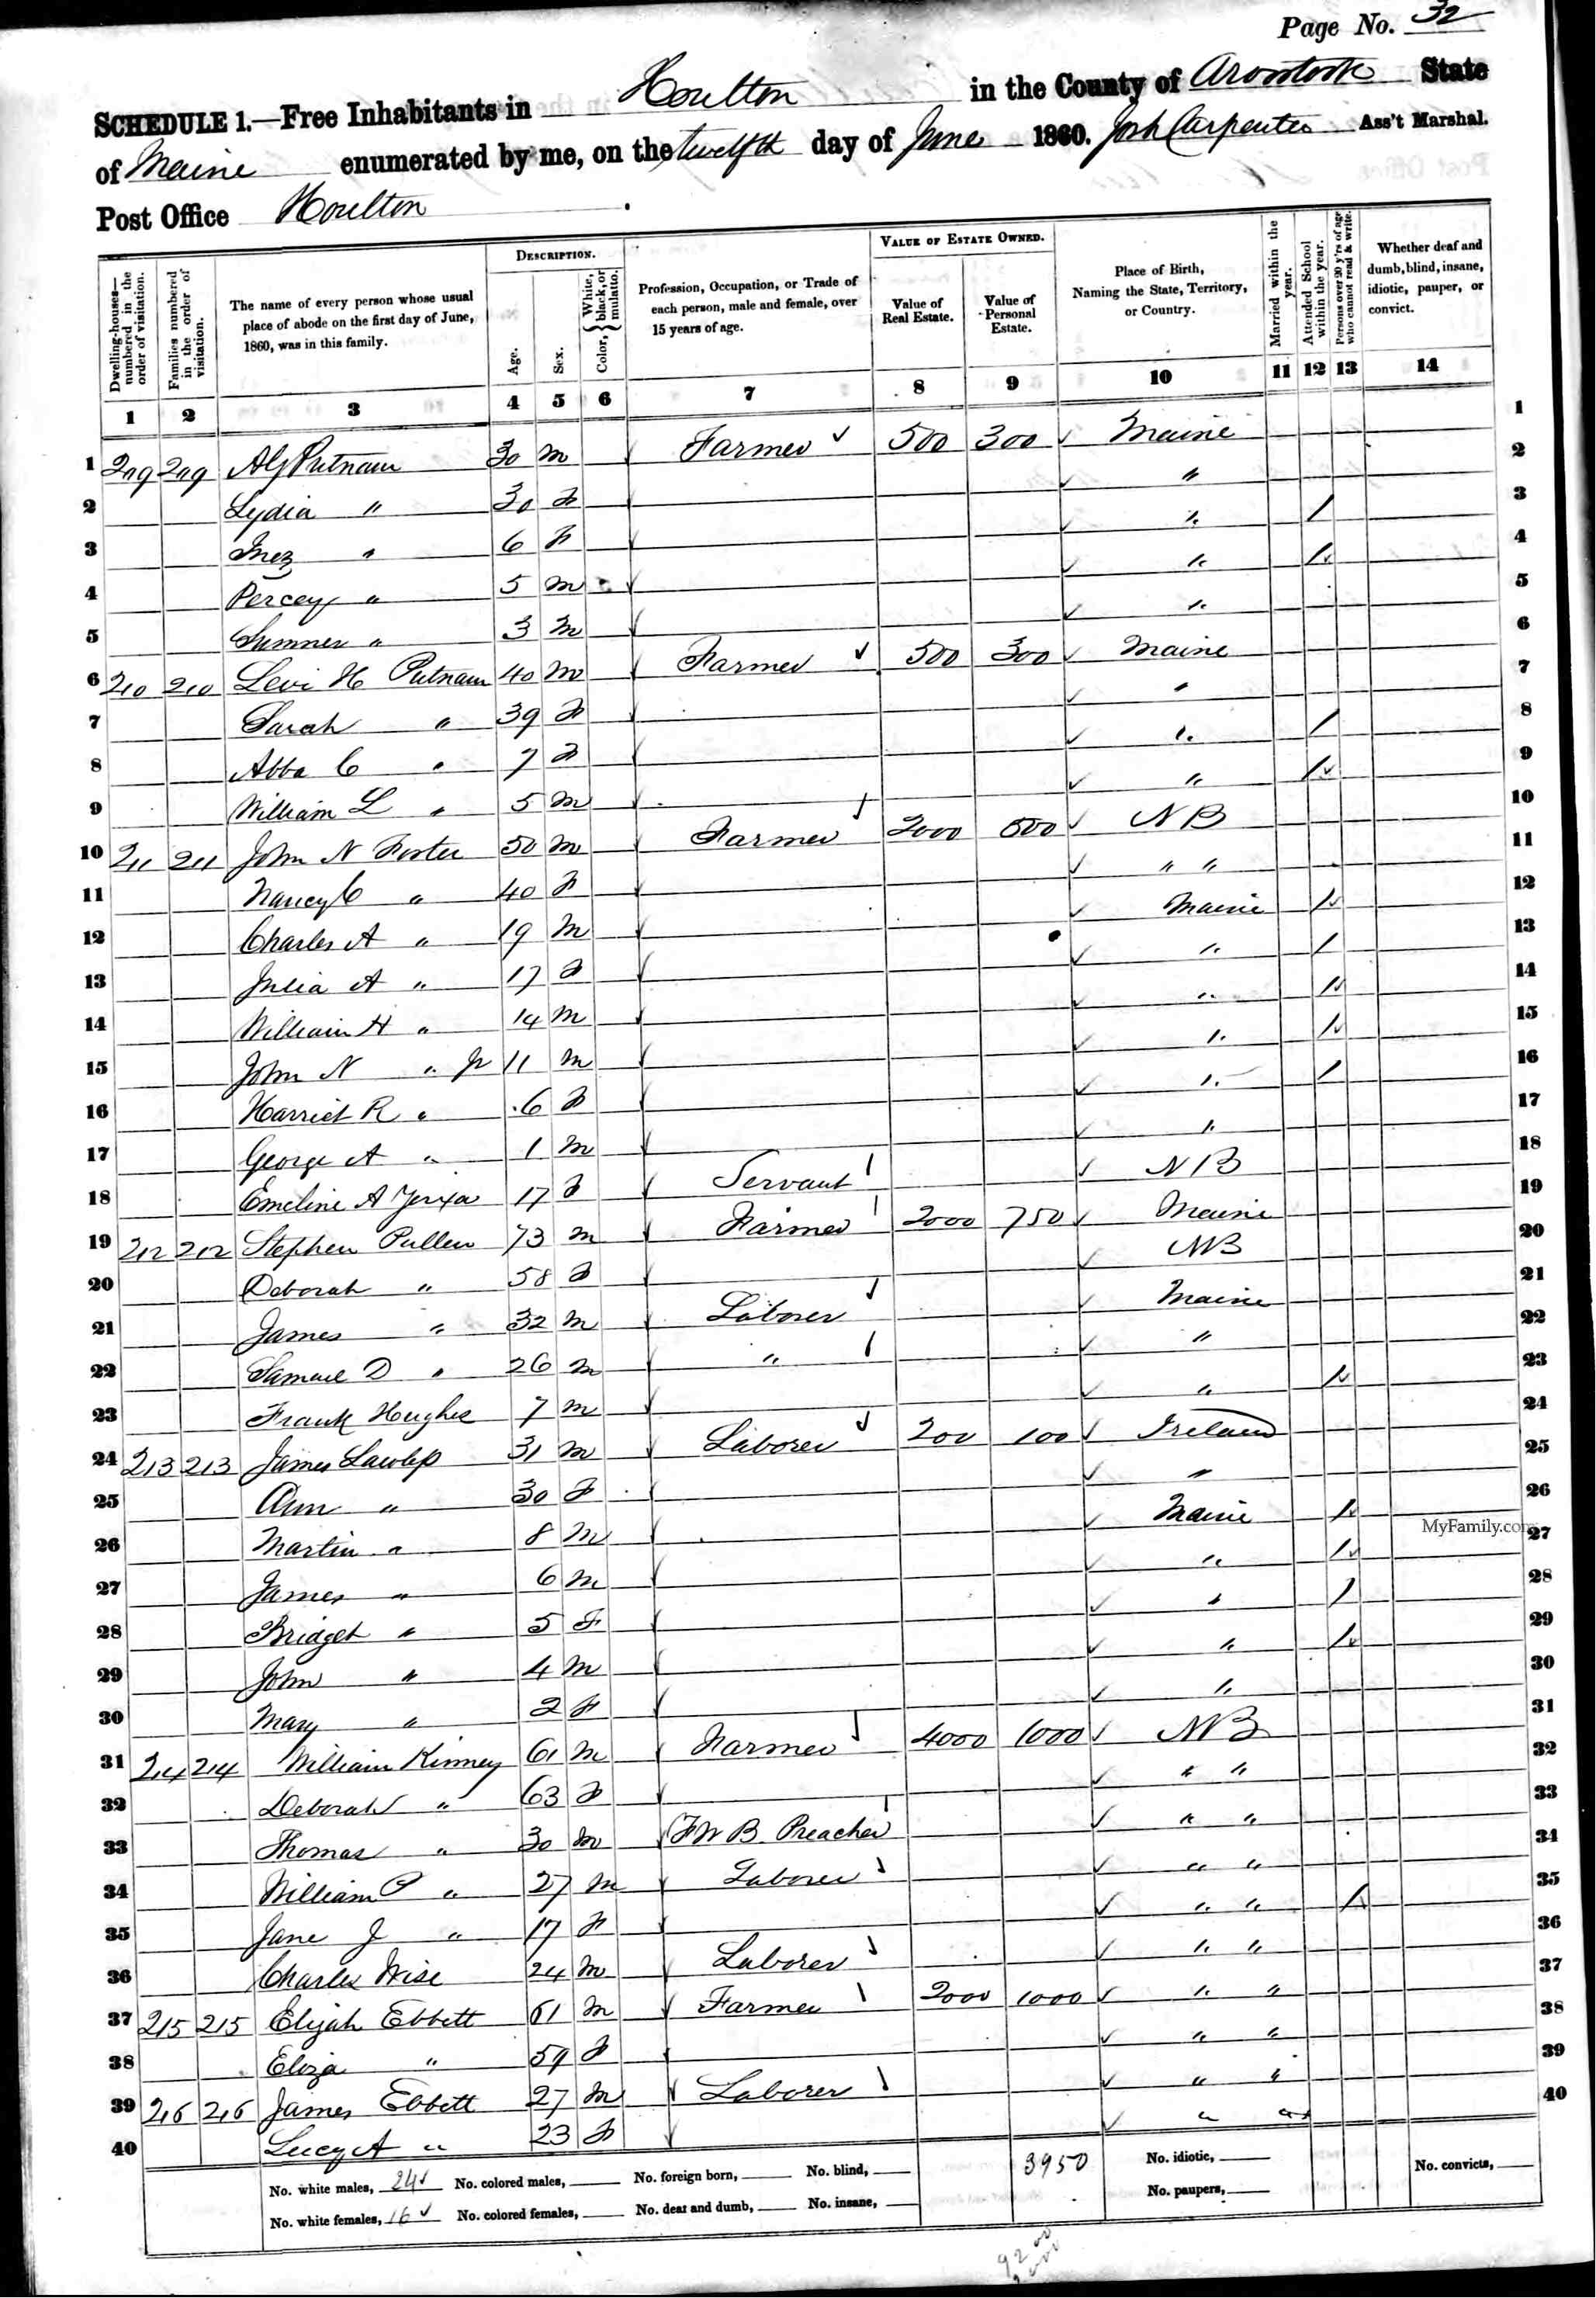 Page No. 32
SCHEDULE 1.—Free Inhabitants in Houlton in the County of Aroostook State
of Maine enumerated by me, on the twelfth day of June 1860. Josh Carpenter Ass't Marshal.
Post Office Houlton
Dwelling-houses—numbered in the order of visitation.
Families numbered in the order of visitation.
The name of every person whose usual place of abode on the first day of June, 1860, was in this family.
DESCRIPTION.
Age.
Sex.
Color, { White, black, or mulatto.
Profession, Occupation, or Trade of each person, male and female, over 15 years of age.
VALUE OF ESTATE OWNED.
Value of Real Estate.
Value of Personal Estate.
Place of Birth, Naming the State, Territory, or Country.
Married within the year.
Attended School within the year.
Persons over 20 y'rs of age who cannot read & write.
Whether deaf and dumb, blind, insane, idiotic, pauper, or convict.
1 2 3 4 5 6 7 8 9 10 11 12 13 14
1 209 209 Putnam 30 m Farmer 500 300 Maine 1
2 Lydia " 30 F " 2
3 Inez " 6 F " / 3
4 Percey " 5 m " / 4
5 Sumner " 3 m " 5
6 210 210 Levi H Putnam 40 m Farmer 500 300 Maine 6
7 Sarah " 39 F " 7
8 Abba C " 7 F " / 8
9 William L " 5 m " / 9
10 211 211 John N Foster 50 m Farmer 2000 500 N B 10
11 Nancy C " 40 F " " 11
12 Charles A " 19 m Maine / 12
13 Julia A " 17 F " / 13
14 William H " 14 m " / 14
15 John N " Jr 11 m " / 15
16 Harriet R " 6 F " / 16
17 George A " 1 m " 17
18 Emeline A Yerxa 17 F Servant N B 18
19 212 212 Stephen Pullen 73 m Farmer 2000 750 Maine 19
20 Deborah " 58 F NB 20
21 James " 32 m Laborer Maine 21
22 Samuel D " 26 m " " 22
23 Frank Hughes 7 m " / 23
24 213 213 James 31 m Laborer 200 100 Ireland 24
25 Ann " 30 F " 25
26 Martin " 8 m Maine / 26
27 James " 6 m " / 27
28 Bridget " 5 F " / 28
29 John " 4 m " / 29
30 Mary " 2 F " 30
31 214 214 William Kinney 61 m Farmer 4000 1000 NB 31
32 Deborah " 63 F " " 32
33 Thomas " 30 m F W B Preacher " " 33
34 William P " 27 m Laborer " " 34
35 Jane J " 17 F " " / 35
36 Charles Wise 24 m Laborer " " 36
37 215 215 Elijah Ebbett 61 m Farmer 2000 1000 " " 37
38 Eliza " 59 F " " 38
39 216 216 James Ebbett 27 m Laborer " " 39
40 Lucy A " 23 F " " 40
No. white males, 24 No. colored males, No. foreign born, No. blind, 3950 No. idiotic, No. convicts,
No. white females, 16 No. colored females, No. deaf and dumb, No. insane, No. paupers,
MyFamily.com